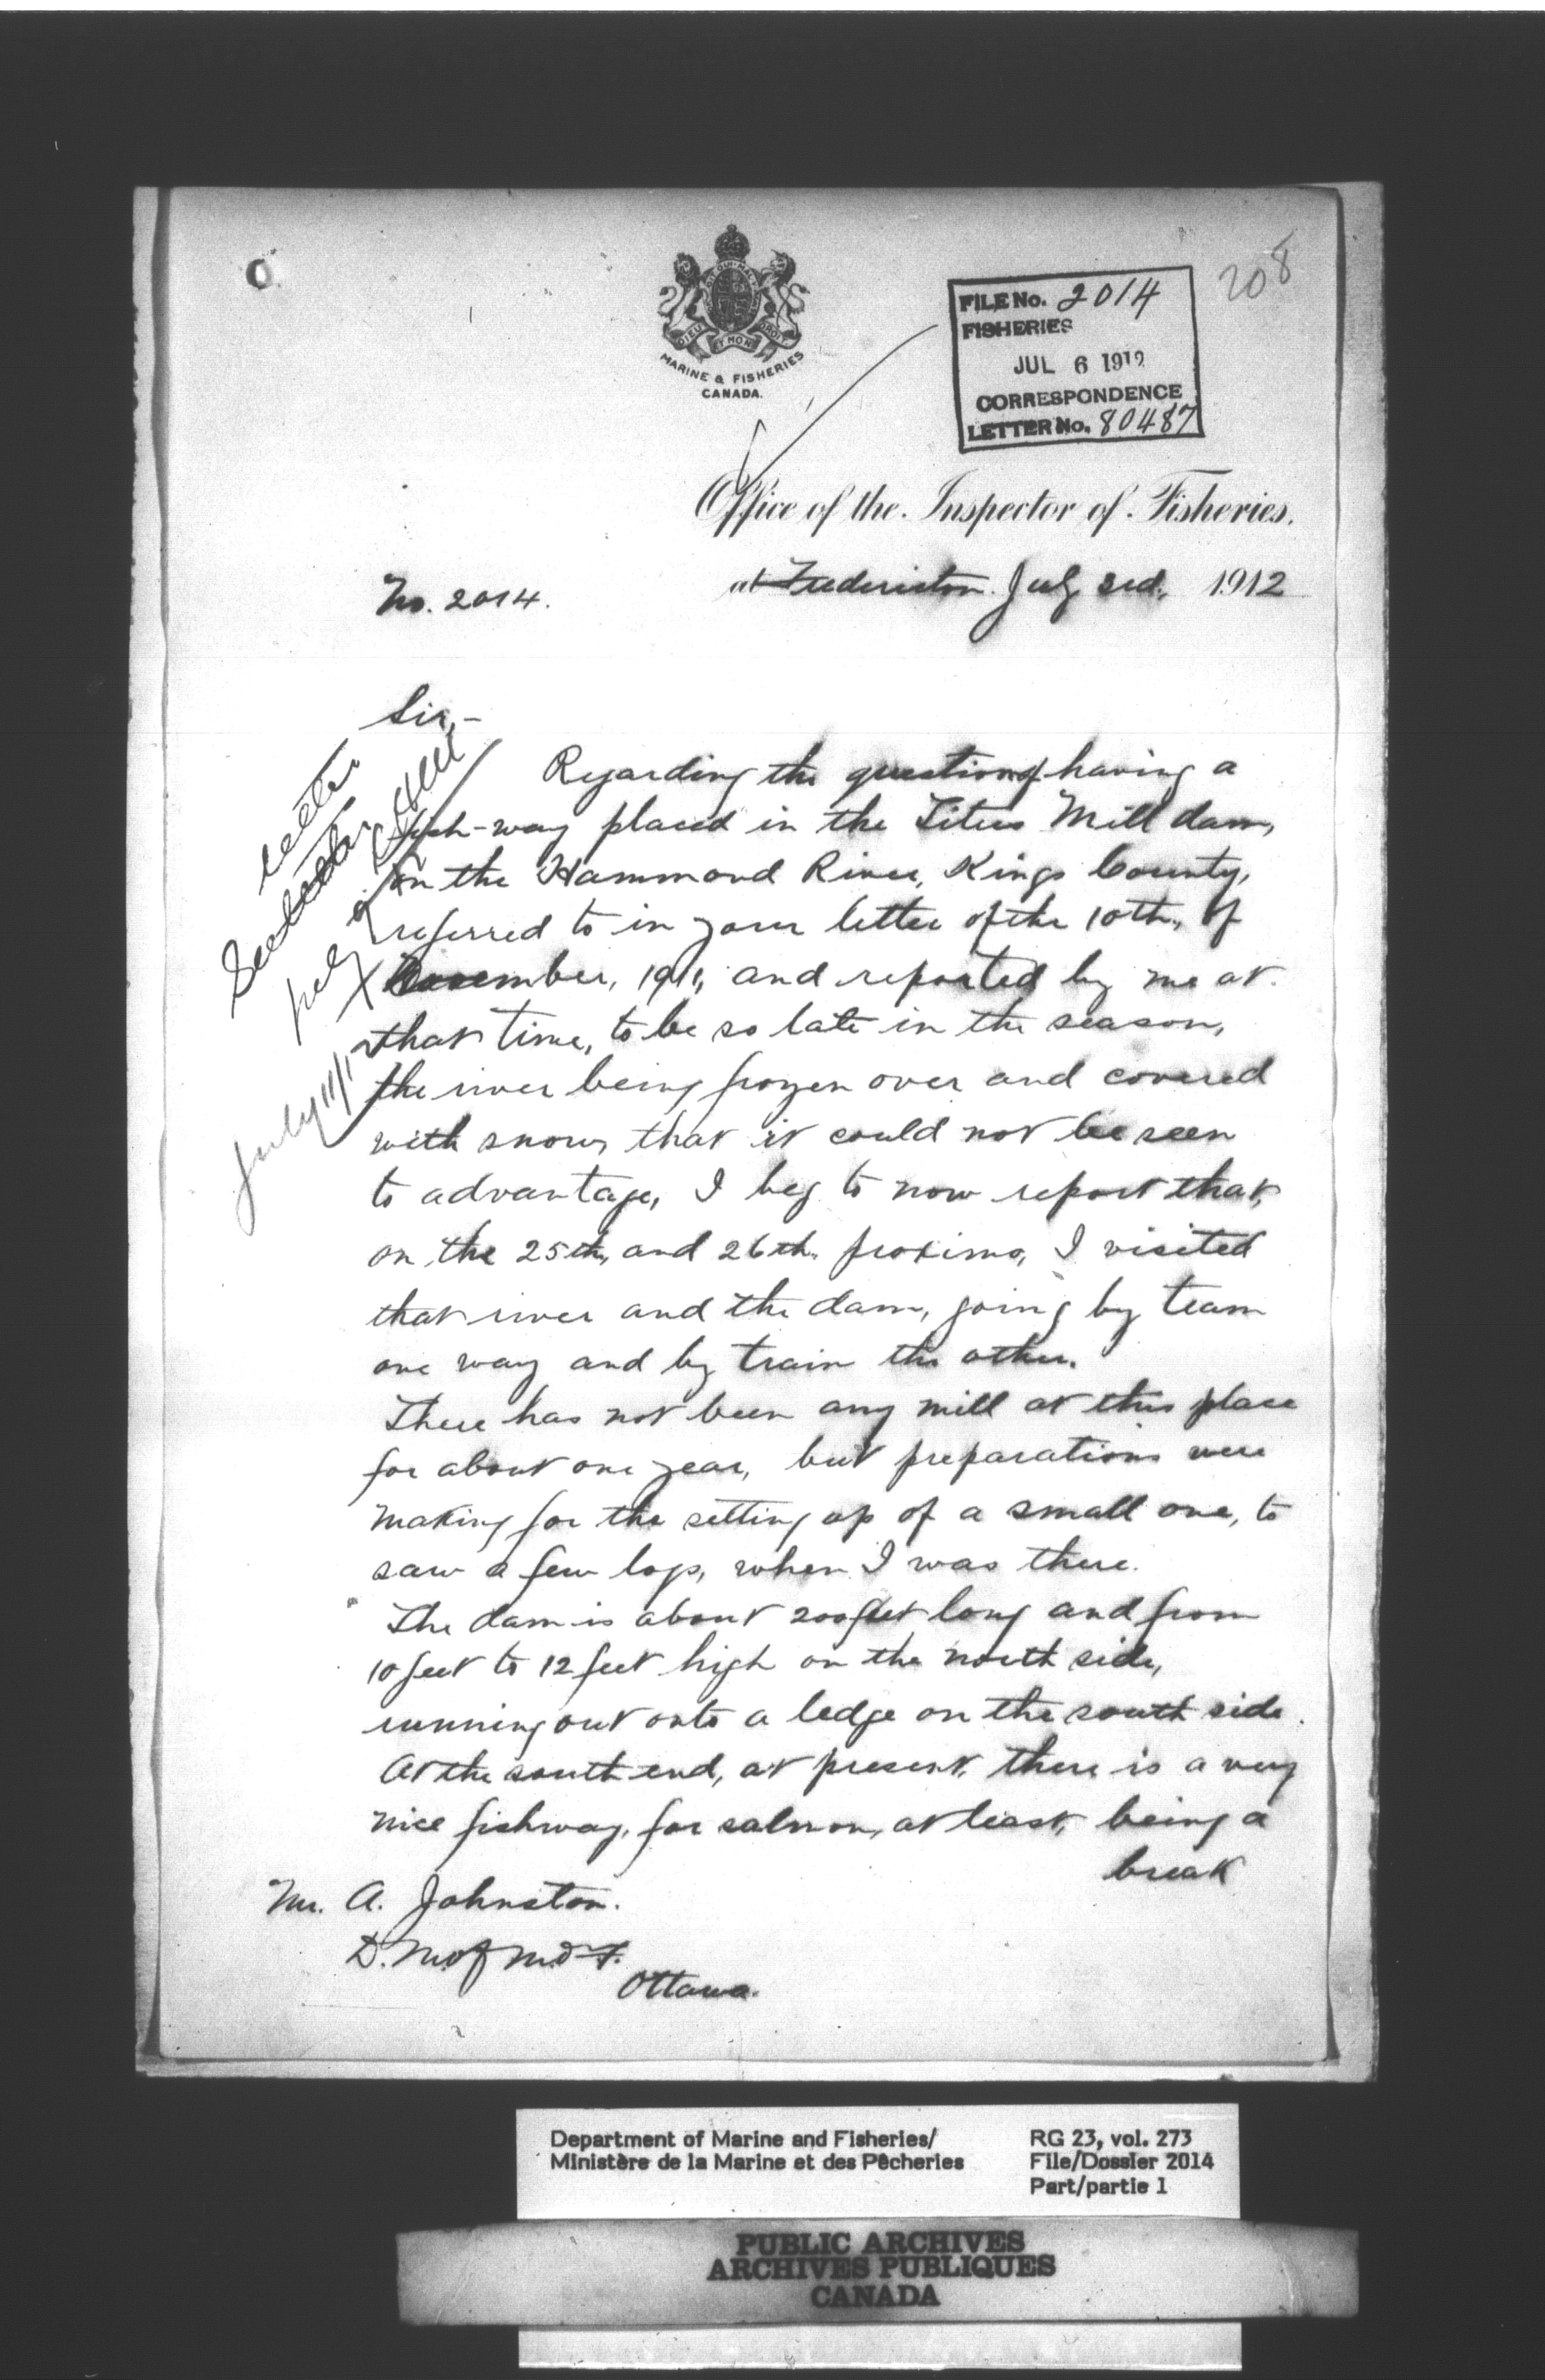 208
DIEU ET MON DROIT
MARINE & FISHERIES
CANADA.
FILE No. 2014
FISHERIES
JUL 6 1912
CORRESPONDENCE
LETTER No. 80487
Office of the Inspector of Fisheries.
at Fredericton July 3rd, 1912
No. 2014.
Sir,-
Regarding the question of having a
fish-way placed in the Titus Mill dam,
on the Hammond River, Kings County,
referred to in your letter of the 10th, of
December, 1911, and reported by me at
that time, to be so late in the season,
the river being frozen over and covered
with snow, that it could not be seen
to advantage, I beg to now report that,
on the 25th, and 26th. proximo, I visited
that river and the dam, going by team
one way and by train the other.
There has not been any mill at this place
for about one year, but preparations were
making for the setting up of a small one, to
saw a few logs, when I was there.
The dam is about 200 feet long and from
10 feet to 12 feet high on the north side,
running out onto a ledge on the south side.
At the south end, at present, there is a very
nice fishway, for salmon, at least, being a
break
Mr. A. Johnston.
D. M of M & F.
Ottawa.
letter
July 11/12
Department of Marine and Fisheries/
Ministère de la Marine et des Pêcheries
RG 23, vol. 273
File/Dossier 2014
Part/partie 1
PUBLIC ARCHIVES
ARCHIVES PUBLIQUES
CANADA